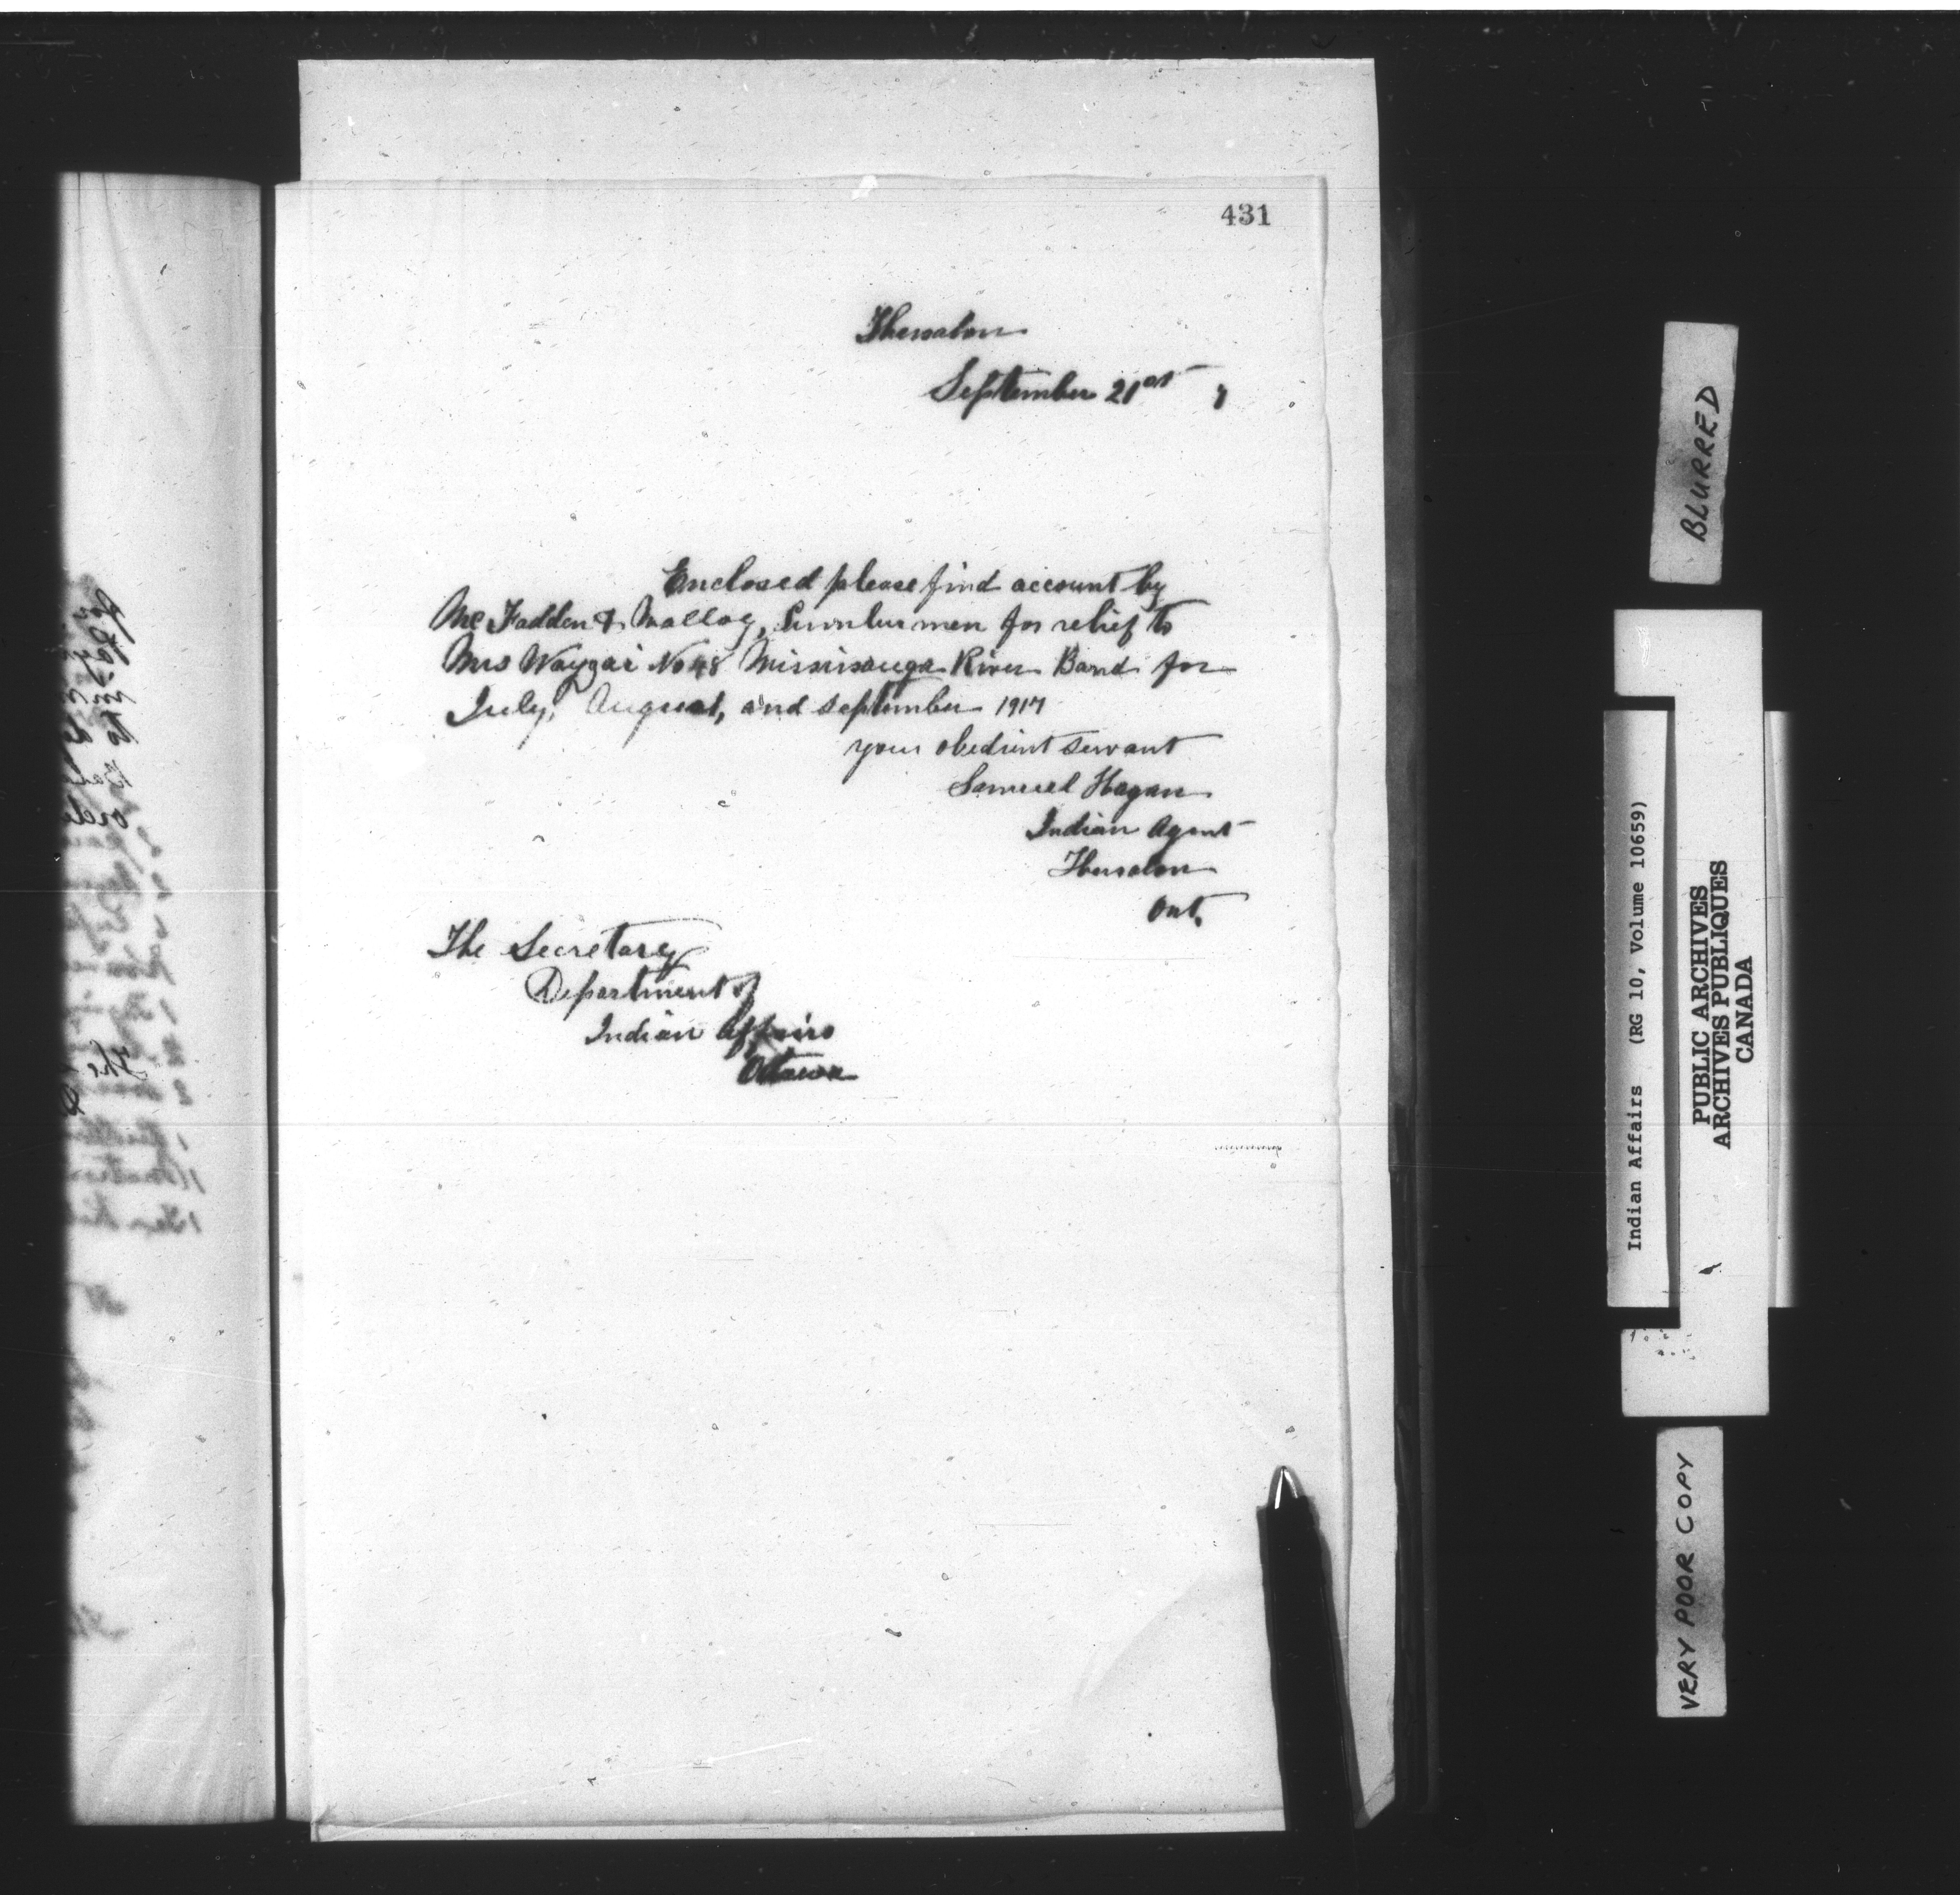 431
Thessalon
September 21st 7
Enclosed please find account by
McFadden & Malloy, Lumbermen for relief to
Mrs Waygai No 48 Mississauga River Band for
July, August, and September 1917
your obedient servant
Samuel Hagan
Indian Agent
Thessalon
Ont.
The Secretary
Department of
Indian Affairs
Ottawa
BLURRED
Indian Affairs (RG 10, Volume 10659)
PUBLIC ARCHIVES
ARCHIVES PUBLIQUES
CANADA
VERY POOR COPY